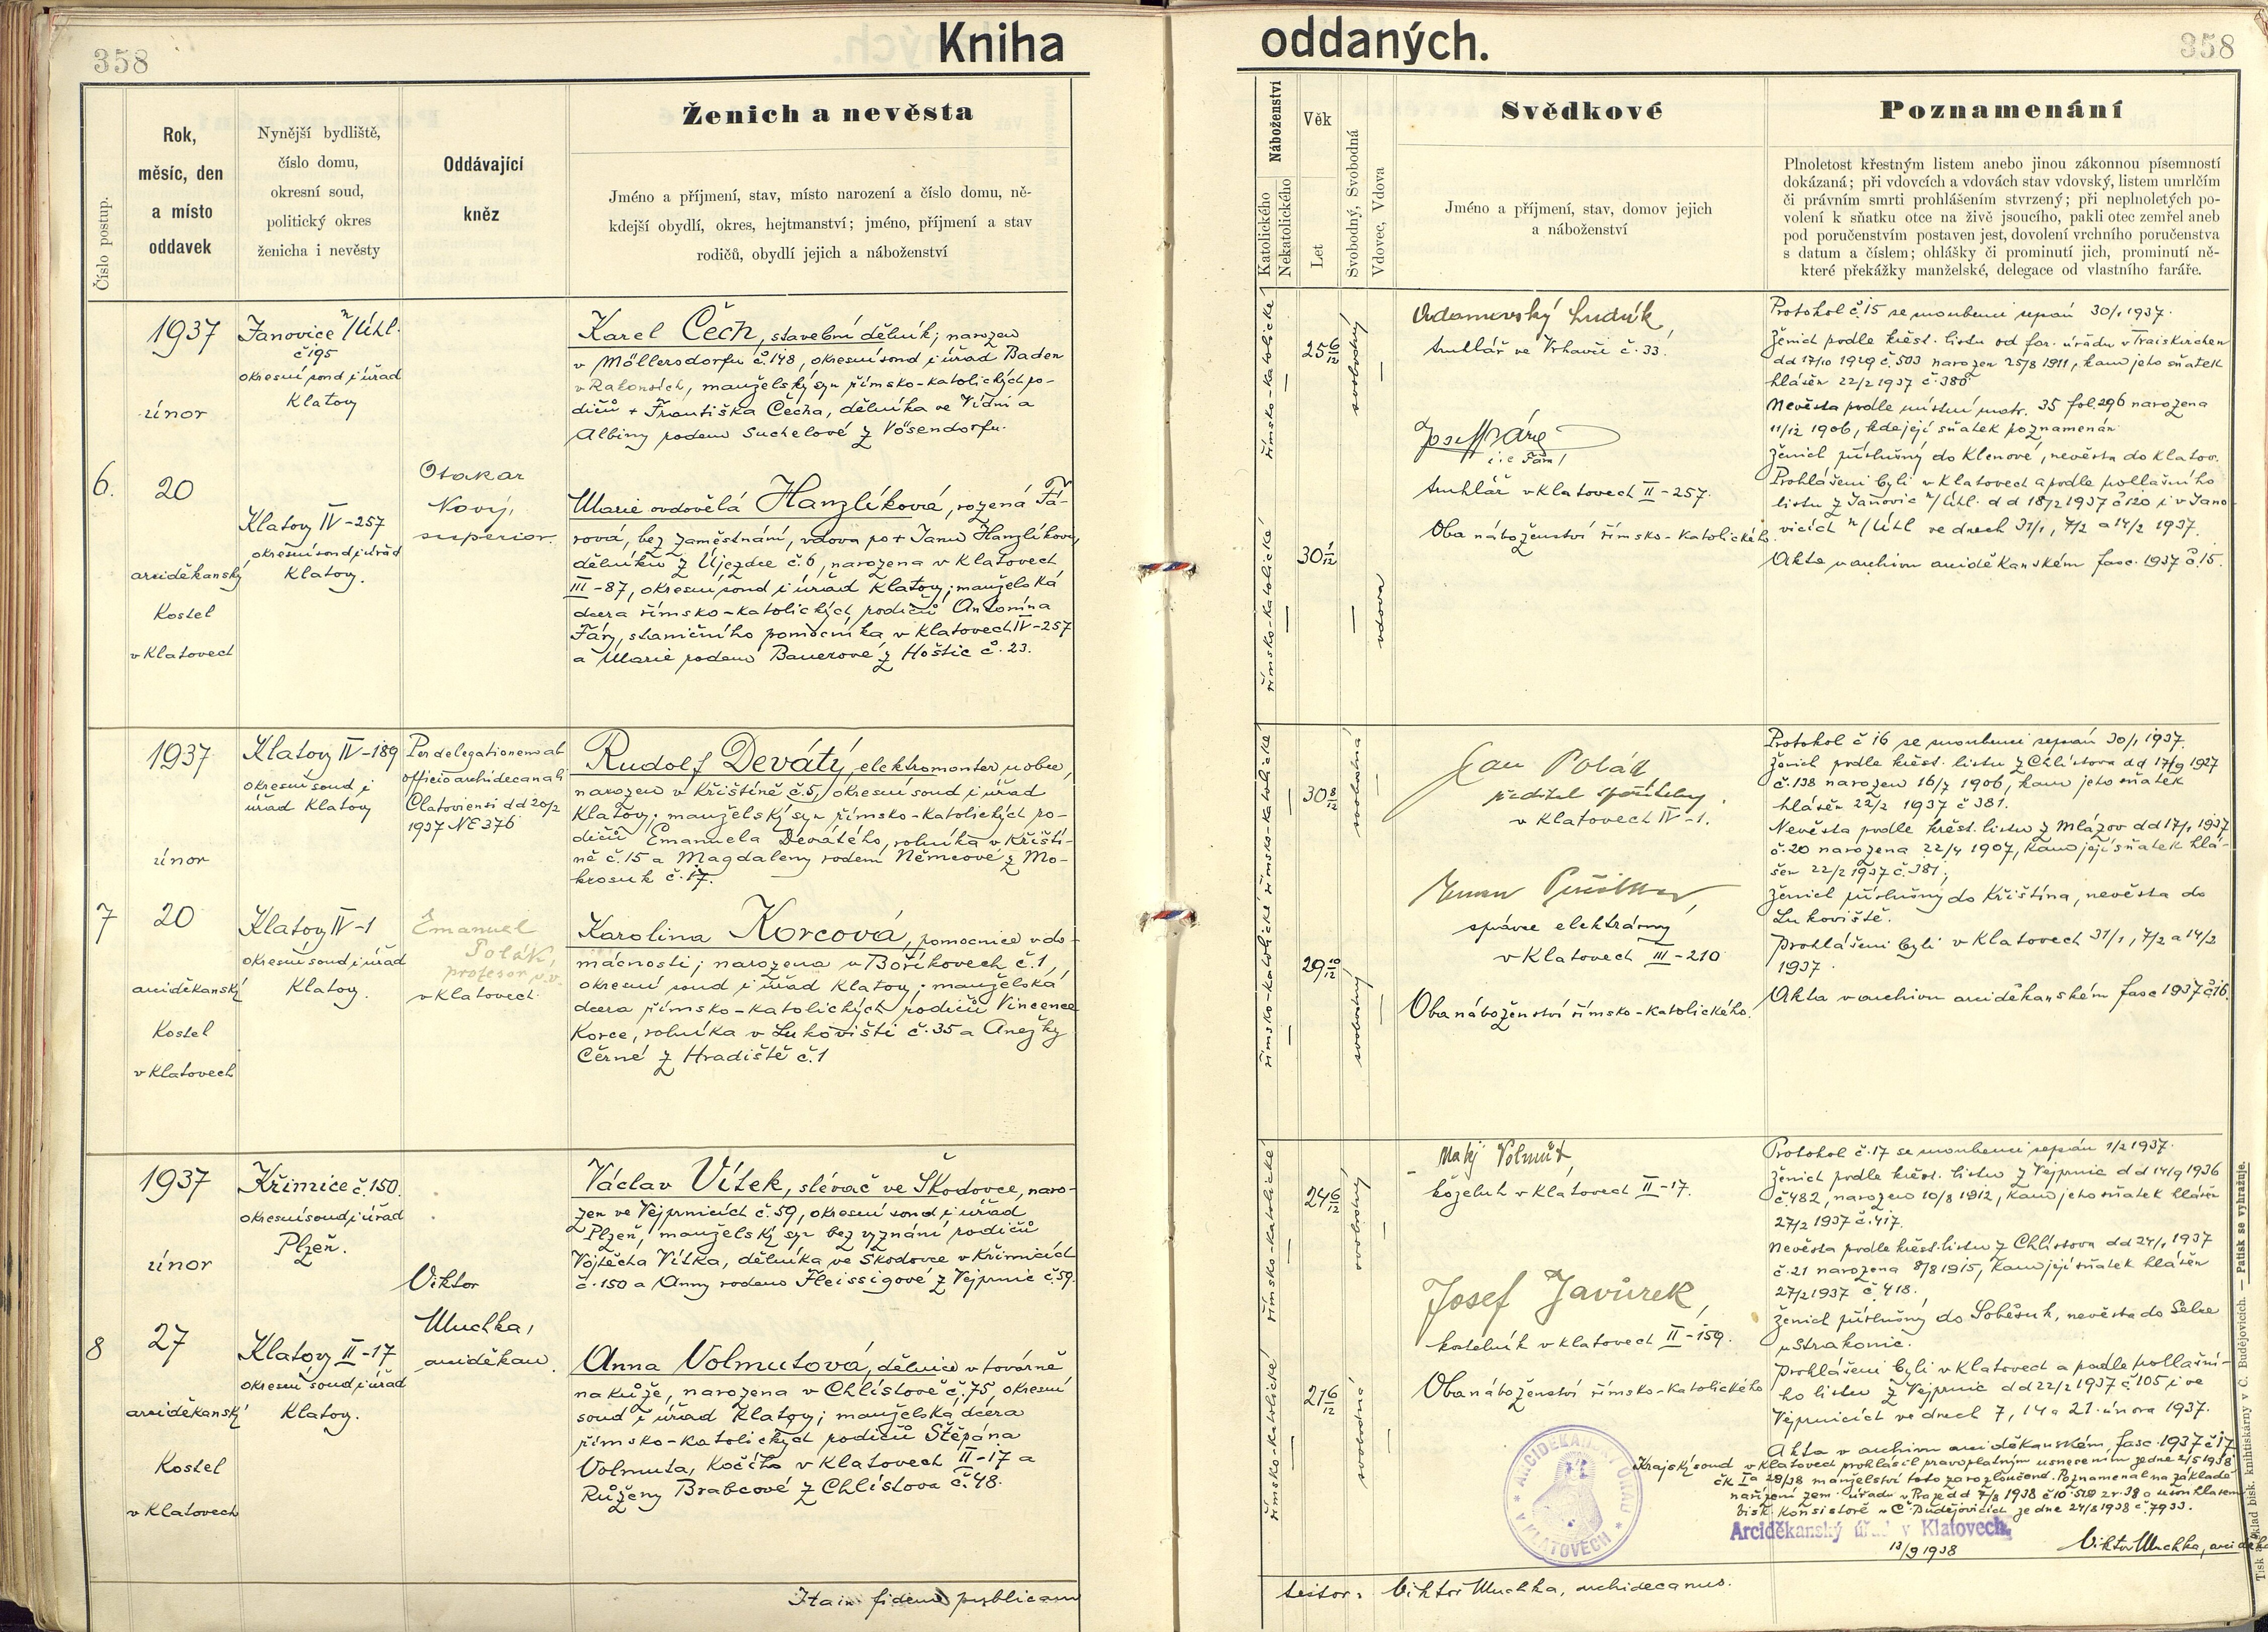 358
Kniha
oddaných.
358
Číslo postup.
Rok,
měsíc, den
a místo
oddavek
Nynější bydliště,
číslo domu,
okresní soud,
politický okres
ženicha i nevěsty
Oddávající
kněz
Ženich a nevěsta
Jméno a příjmení, stav, místo narození a číslo domu, ně-
kdejší obydlí, okres, hejtmanství; jméno, příjmení a stav
rodičů, obydlí jejich a náboženství
Náboženství
Katolického
Nekatolického
Věk
Let
Svobodný, Svobodná
Vdovec, Vdova
Svědkové
Jméno a příjmení, stav, domov jejich
a náboženství
Poznamenání
Plnoletost křestným listem anebo jinou zákonnou písemností
dokázaná; při vdovcích a vdovách stav vdovský, listem umrlčím
či právním smrti prohlášením stvrzený; při neplnoletých po-
volení k sňatku otce na živě jsoucího, pakli otec zemřel aneb
pod poručenstvím postaven jest, dovolení vrchního poručenstva
s datum a číslem; ohlášky či prominutí jich, prominutí ně-
které překážky manželské, delegace od vlastního faráře.
6.
1937
únor
20
arciděkanský
Kostel
v Klatovech
Janovice n/Úhl.
č 195
okresní soud i úřad
Klatovy
Klatovy IV-257
okresní soud i úřad
Klatovy.
Otakar
Nový,
superior.
Karel Čech, stavební dělník; narozen
v Möllersdorfu č. 148, okresní soud i úřad Baden
v Rakousích, manželský syn římsko-katolických ro-
dičů + Františka Čecha, dělníka ve Vídni a
Albiny rodem Suchelové z Vösendorfu.
Marie ovdovělá Hanzlíková, rozená Fá-
rová, bez zaměstnání, vdova po + Janu Hanzlíkovi,
dělníku z Újezdce č. 6, narozena v Klatovech
III-87, okresní soud i úřad Klatovy; manželská
dcera římsko-katolických rodičů Antonína
Fáry, staničního pomocníka v Klatovech IV-257
a Marie rodem Bauerové z Hoštic č. 23.
římsko-katolické
25 6/12
svobodný
římsko-katolické
30 1/12
vdova
Adamovský Luděk,
truhlář ve Vrhavči č. 33.
Josef Fára
i.e Fára!
truhlář v Klatovech II-257.
Oba náboženství římsko-katolického.
Protokol č. 15 se snoubenci sepsán 30/1 1937.
Ženich podle křest. listu od far. úřadu v Traiskirchen
dd 17/10 1929 č. 503 narozen 25/8 1911, kam jeho sňatek
hlášen 22/2 1937 č. 380
Nevěsta podle místní matr. 35 fol. 296 narozena
11/12 1906, kde její sňatek poznamenán
Ženich příslušný do Klenové, nevěsta do Klatov.
Prohlášeni byli v Klatovech a podle pohlašního
listu z Janovic n/Úhl. dd 18/2 1937 č 120 i v Jano-
vicích n/Úhl ve dnech 31/1, 7/2 a 14/2 1937.
Akta v archivu arciděkanském fasc. 1937 č. 15.
7
1937
únor
20
arciděkanský
Kostel
v Klatovech
Klatovy IV-189
okresní soud i
úřad Klatovy
Klatovy IV-1
okresní soud i úřad
Klatovy.
Per delegationem ab
officio archidecanali
Clatoviensi dd 20/2
1937 NE 376
Emanuel
Polák,
profesor v.v.
v Klatovech
Rudolf Devátý, elektromontér u obce,
narozen v Křištíně č. 5, okresní soud i úřad
Klatovy; manželský syn římsko-katolických ro-
dičů Emanuela Devátého, rolníka v Křiští-
ně č. 15 a Magdaleny rodem Němcové z Mo-
krosuk č. 17.
Karolina Korcová, pomocnice v do-
mácnosti; narozena v Boříkovech č. 1,
okresní soud i úřad Klatovy; manželská
dcera římsko-katolických rodičů Vincence
Korce, rolníka v Lukovišti č. 35 a Anežky
Černé z Hradiště č. 1
římsko-katolické
30 8/12
svobodná
římsko-katolické
29 10/12
svobodný
Jan Polák
ředitel spořitelny
v Klatovech IV-1.
správce elektrárny
v Klatovech III-210
Oba náboženství římsko-katolického.
Protokol č 16 se snoubenci sepsán 30/1 1937.
Ženich podle křest. listu z Chlistova dd 17/9 1927
č. 138 narozen 16/7 1906, kam jeho sňatek
hlášen 22/2 1937 č 381.
Nevěsta podle křest. listu z Mlázov dd 17/1 1937
č. 20 narozena 22/4 1907, kam její sňatek hlá-
šen 22/2 1937 č. 381;
Ženich příslušný do Křištína, nevěsta do
Lukoviště.
Prohlášeni byli v Klatovech 31/1, 7/2 a 14/2
1937.
Akta v archivu arciděkanském fasc 1937 č 16.
8
1937
únor
27
arciděkanský
Kostel
v Klatovech
Křimice č. 150.
okresní soud i úřad
Plzeň.
Klatovy II-17
okresní soud i úřad
Klatovy.
Viktor
Muchka,
arciděkan.
Václav Vítek, slévač ve Škodovce, naro-
zen ve Vejprnicích č. 59, okresní soud i úřad
Plzeň, manželský syn bez vyznání rodičů
Vojtěcha Vítka, dělníka ve Škodovce v Křimicích
č. 150 a Anny rodem Fleissigové z Vejprnic č. 59.
Anna Volmutová, dělnice v továrně
na kůže, narozena v Chlistově č. 75, okresní
soud i úřad Klatovy; manželská dcera
římsko-katolických rodičů Štěpána
Volmuta, kočího v Klatovech II-17 a
Růženy Brabcové z Chlistova č. 48.
římsko-katolické
24 6/12
svobodný
římsko-katolické
21 6/12
svobodná
Matěj Volmut,
koželuh v Klatovech II-17.
Josef Javůrek,
kostelník v Klatovech II-159.
Oba náboženství římsko-katolického
Protokol č. 17 se snoubenci sepsán 1/2 1937.
Ženich podle křest. listu z Vejprnic dd 14/9 1936
č. 482, narozen 10/8 1912, kam jeho sňatek hlášen
27/2 1937 č. 417.
Nevěsta podle křest. listu z Chlistova dd 24/1 1937
č. 21 narozena 8/8 1915, kam její sňatek hlášen
27/2 1937 č. 418.
Ženich příslušný do Soběsuk, nevěsta do Selce
u Strakonic.
Prohlášeni byli v Klatovech a podle pohlašní-
ho listu z Vejprnic dd 22/2 1937 č 105 i ve
Vejprnicích ve dnech 7, 14 a 21. února 1937.
Akta v archivu arciděkanském, fasc. 1937 č 17.
Krajský soud v Klatovech prohlásil pravoplatným usnesením ze dne 2/5 1938
čk Ia 29/38 manželství toto za rozloučené. Poznamenal na základě
nařízení zem. úřadu v Praze dd 7/8 1938 a souhlasem
bisk. Konsistoře v Č. Budějovicích ze dne 24/8 1938 č. 7933.
ARCIDĚKANSKÝ ÚŘAD * V KLATOVECH *
Arciděkanský úřad v Klatovech.
13/9 1938
Viktor Muchka, arciděkan
Ita in fidem publicam
testor: Viktor Muchka, archidecanus.
Tisk a sklad bisk. knihtiskárny v Č. Budějovicích. — Patisk se vyhražuje.